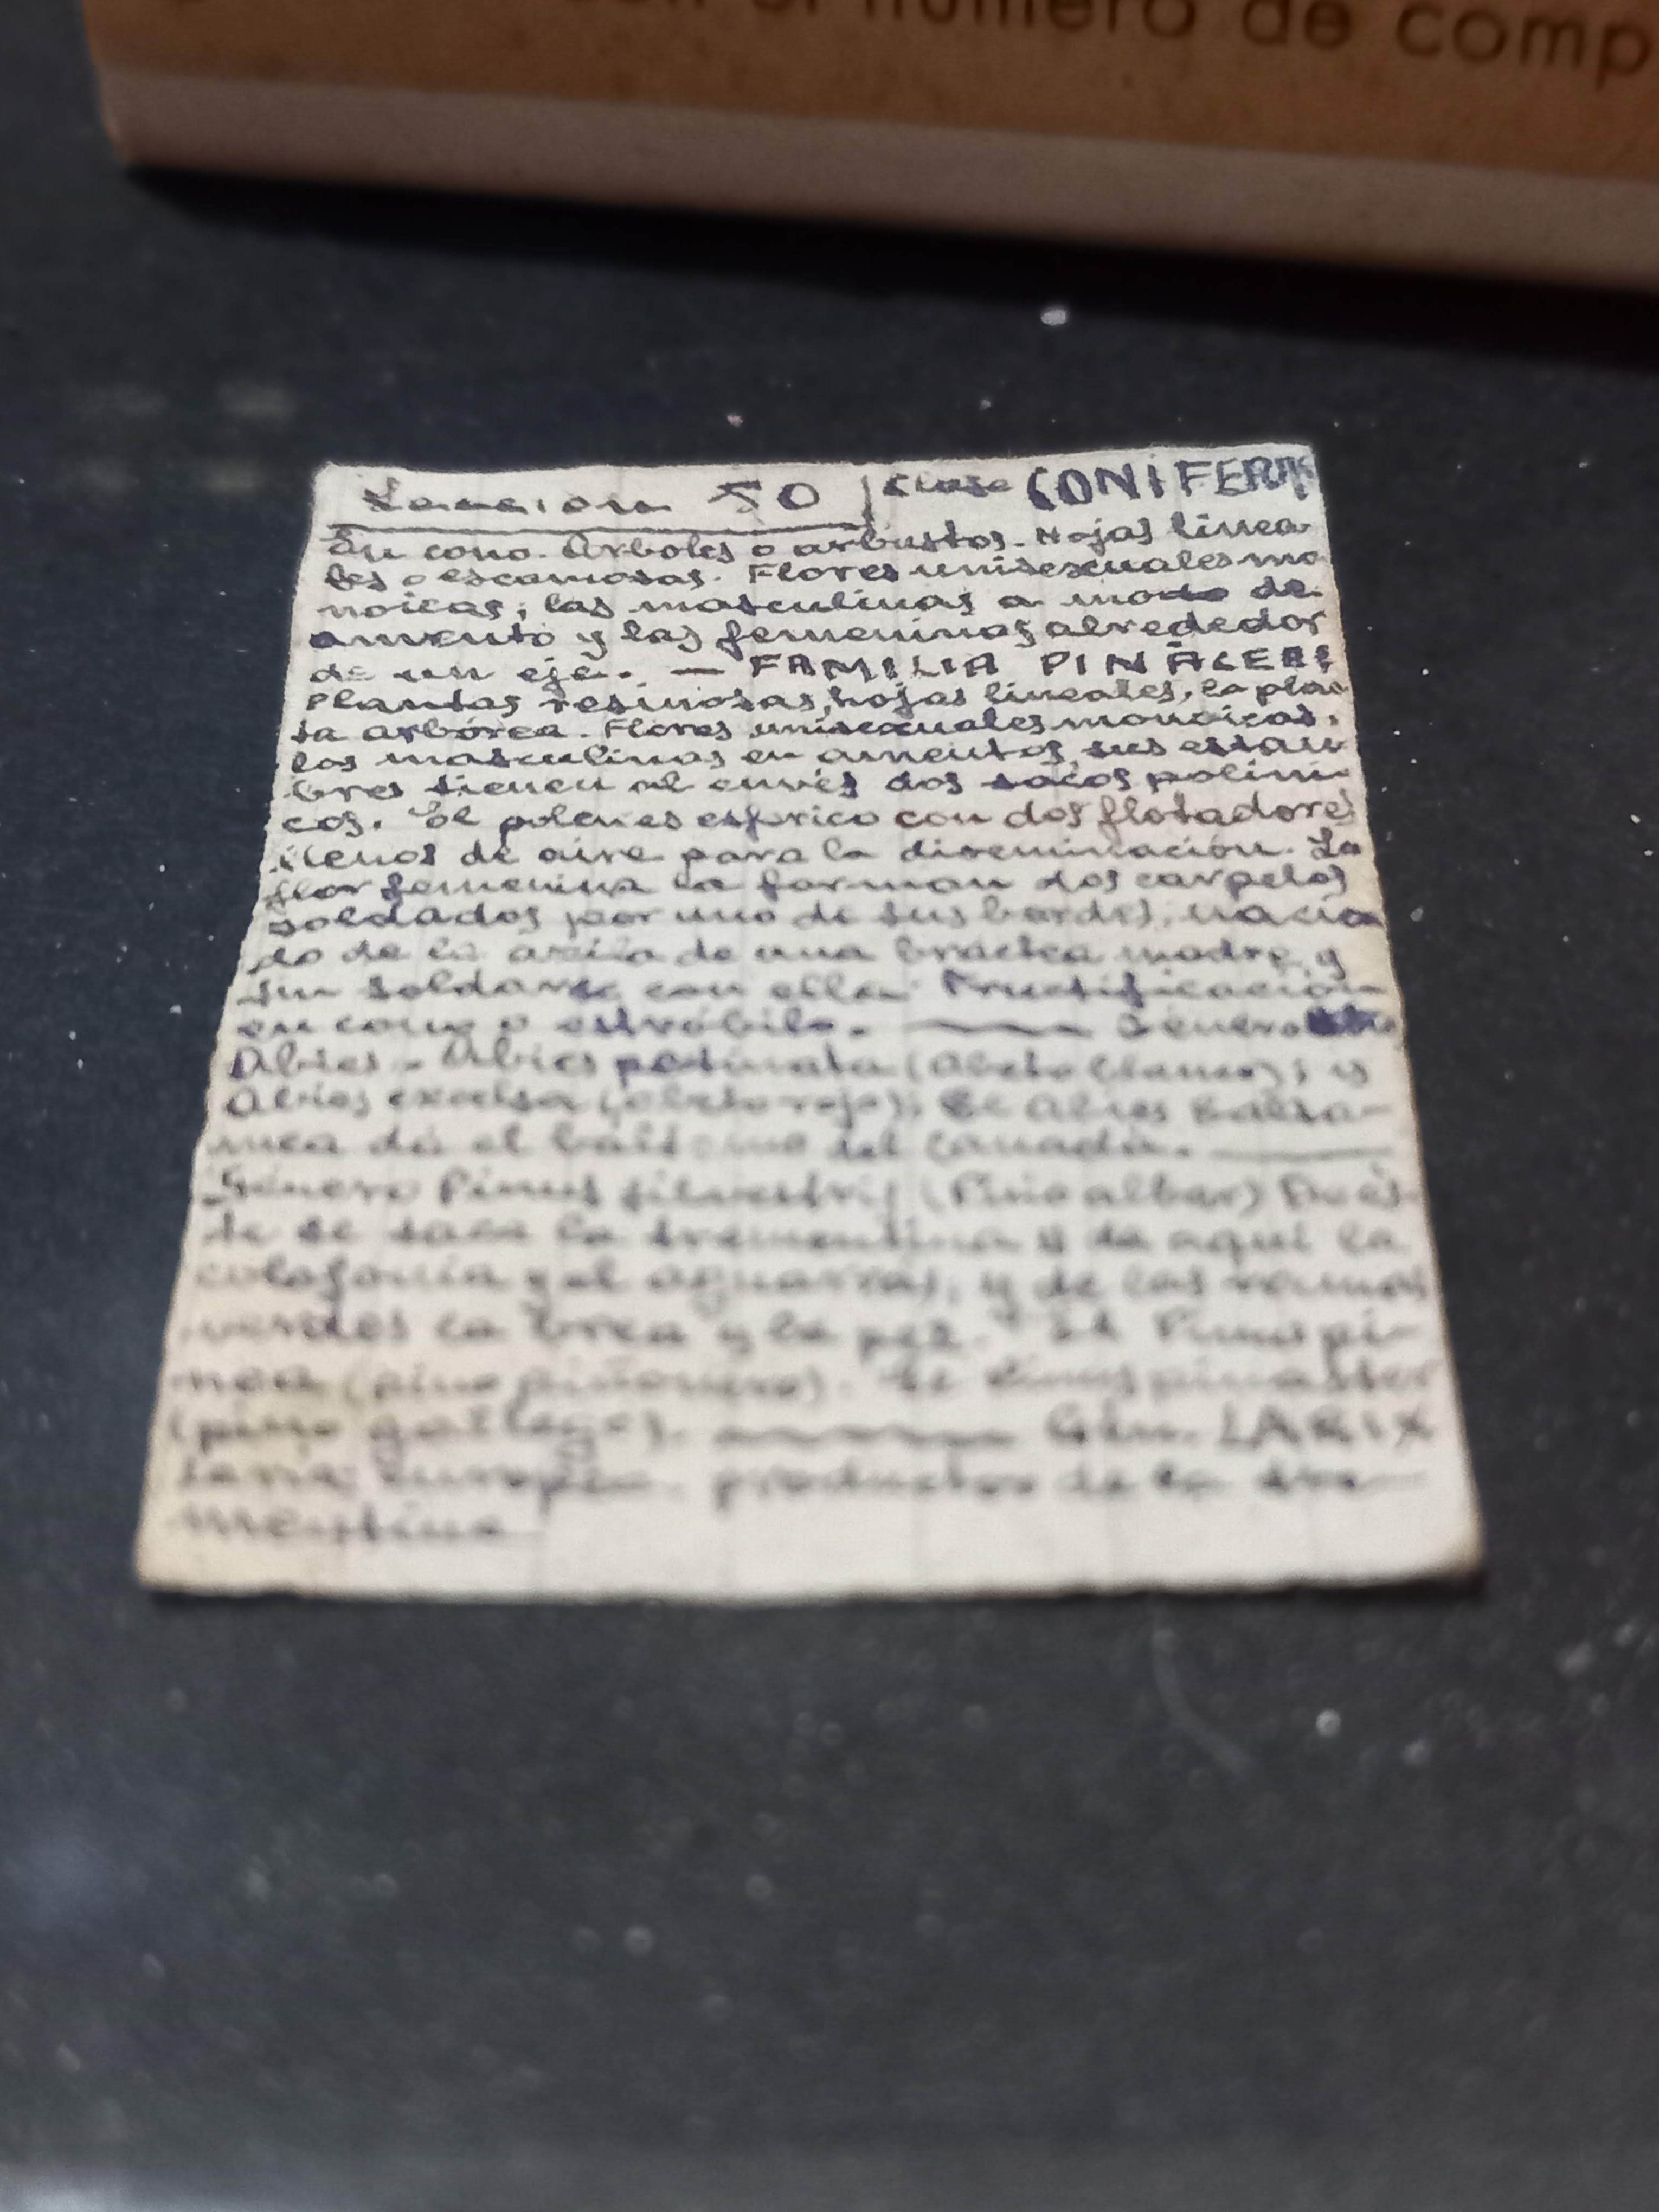 número de comp
Lección 50 Clase CONIFERAS
Su cono. Arboles o arbustos. Hojas linea-
les o escamosas. Flores unisexuales mo
noicas; las masculinas a modo de
amento y las femeninas alrededor
de un eje. — FAMILIA PINÁCEAS
Plantas resinosas, hojas lineales, la plan
ta arbórea. Flores unisexuales monoicas,
las masculinas en amentos, sus estam
bres tienen al envés dos sacos políni
cos. El polen es esférico con dos flotadores
llenos de aire para la diseminación. La
flor femenina la forman dos carpelos
soldados por uno de sus bordes, nacien
do de la axila de una bráctea madre y
sin soldarse con ella. Fructificación
en cono o estróbilo. — Género
Abies. Abies petinata (Abeto blanco); y
Abies excelsa (abeto rojo); El Abies Balsa-
mea da el bálsamo del Canadá. —
Género Pinus silvestris (Pino albar) De és-
te se saca la trementina y de aquí la
colofonia y el aguarrás, y de las ramas
verdes la brea y la pez. El Pinus pi-
nea (pino piñonero). El Pinus pinaster
(pino gallego). — Gén. LARIX
Larix europea. productos de la tre-
mentina